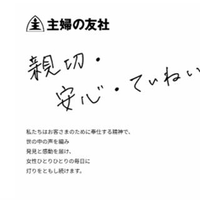 主婦の友社
親切・
安心・ていねい
私たちはお客さまのために奉仕する精神で、
世の中の声を編み
発見と感動を届け、
女性ひとりひとりの毎日に
灯りをともし続けます。